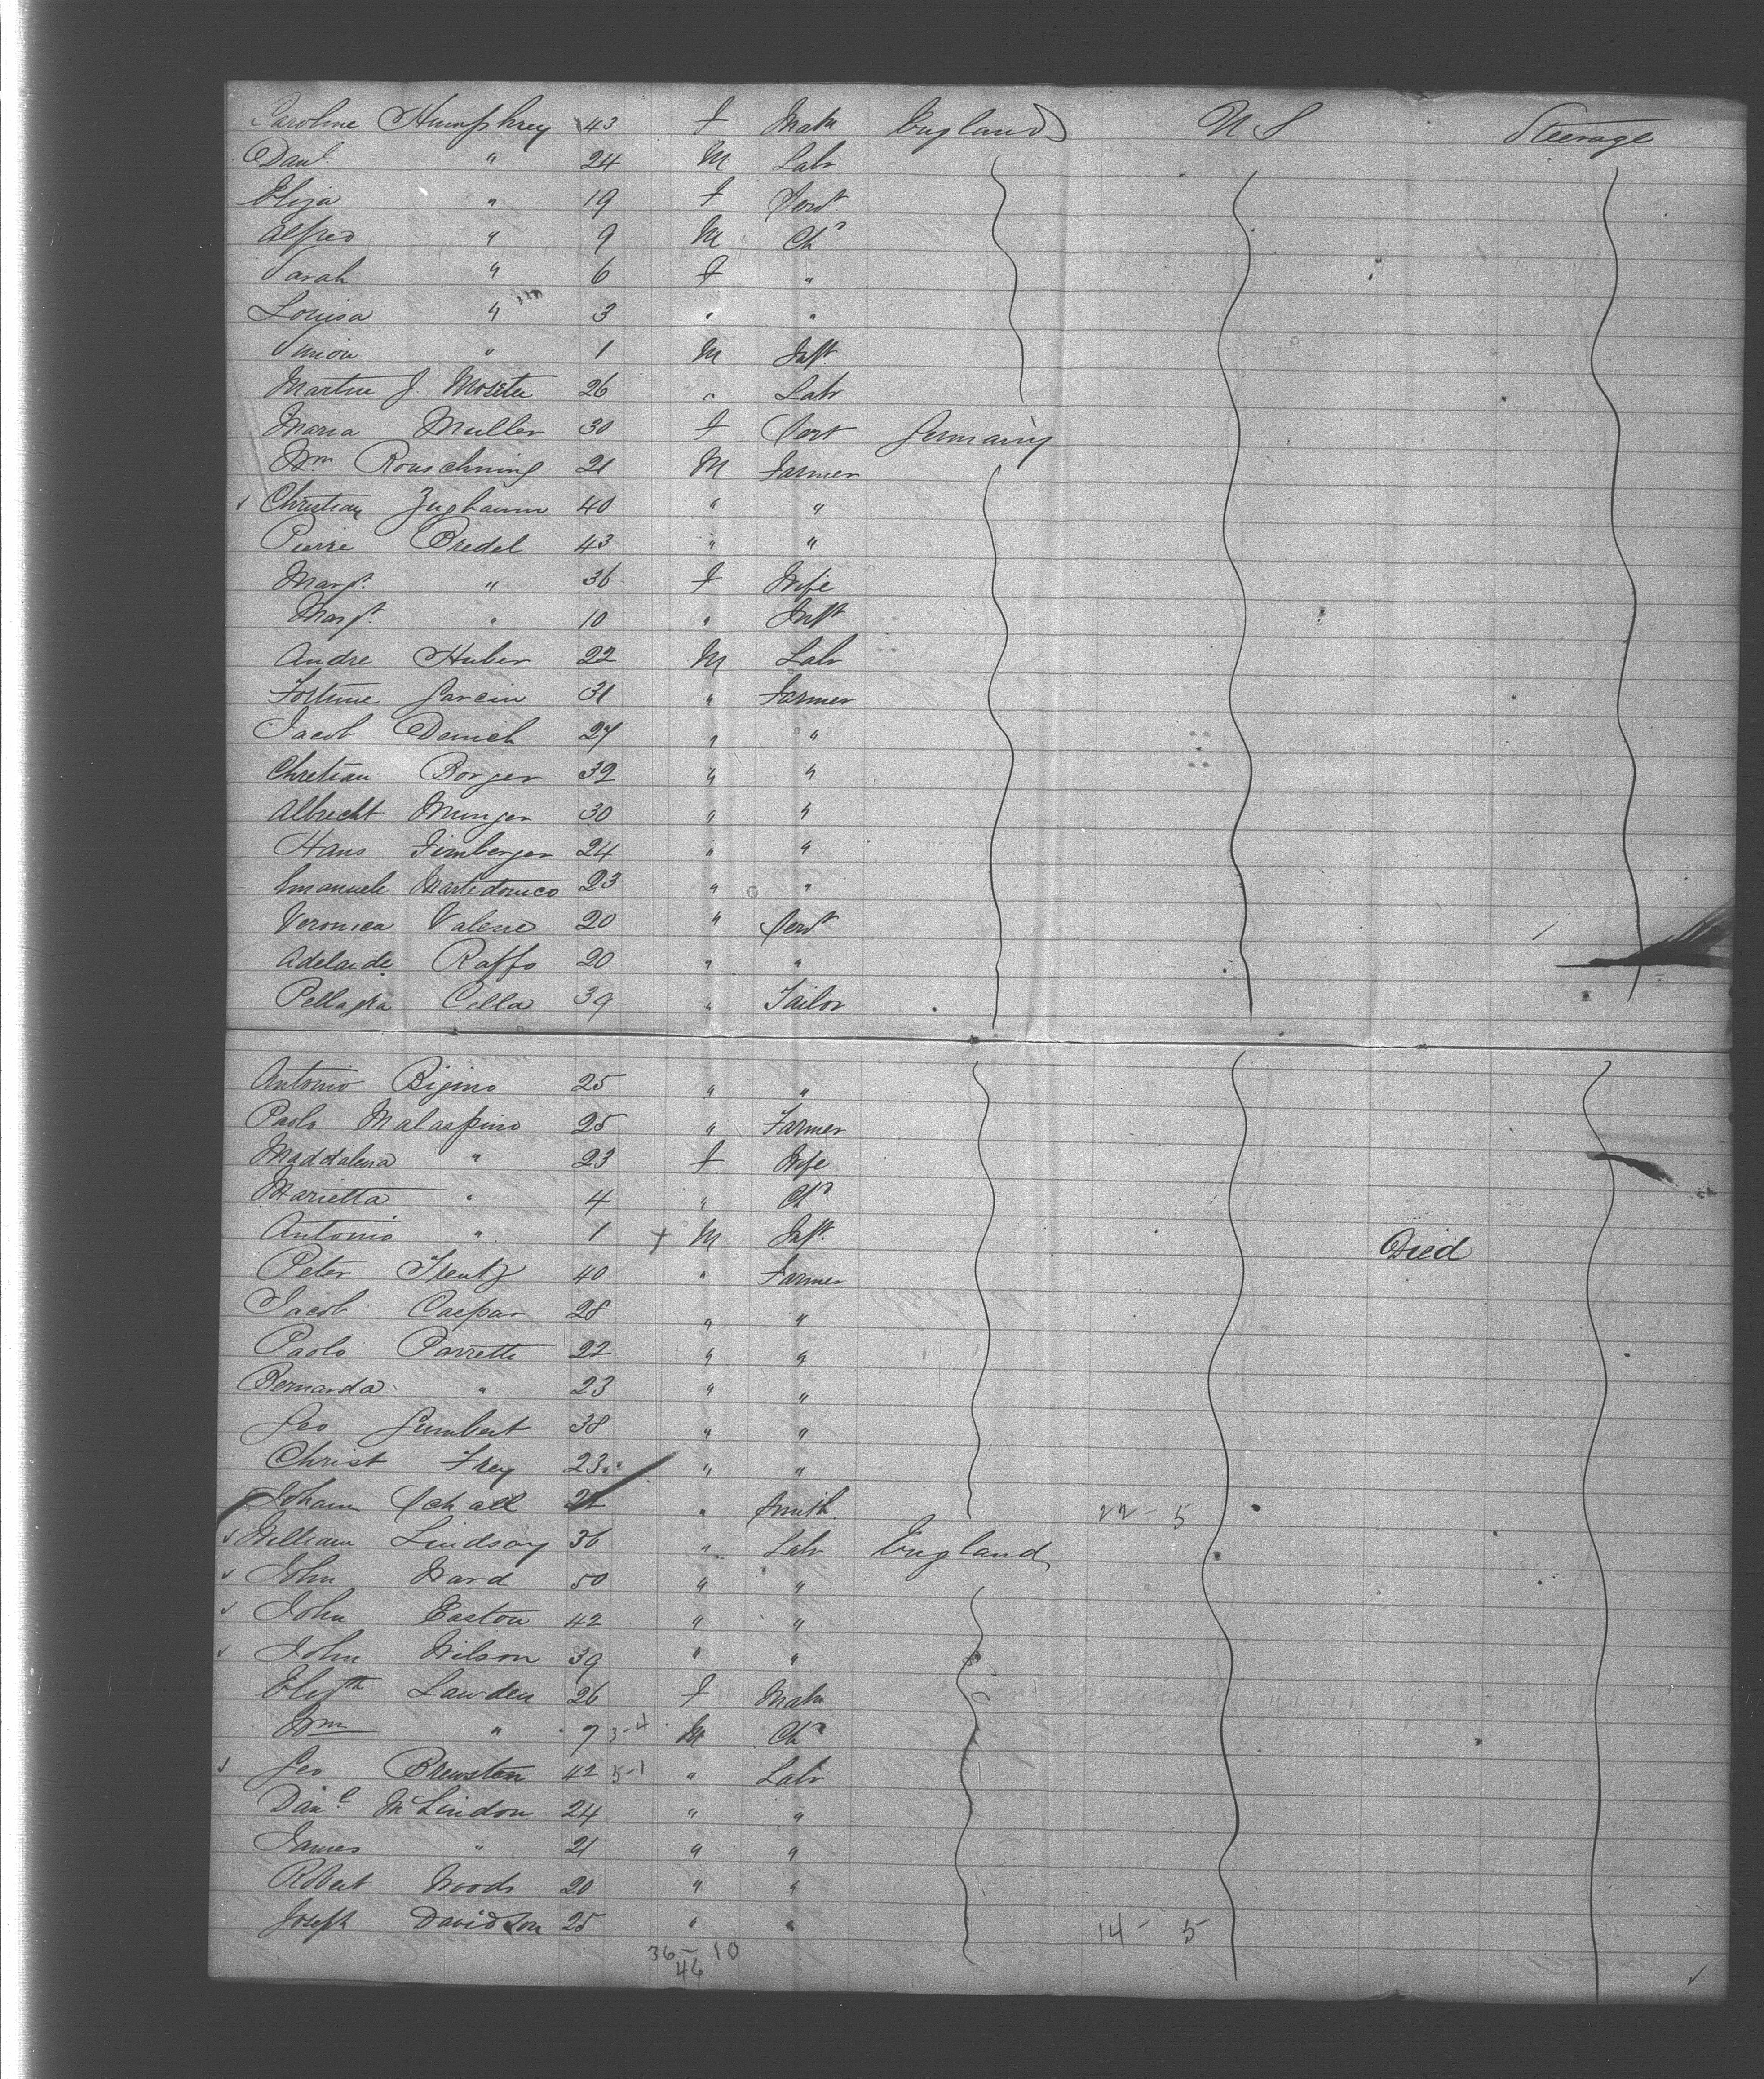 Caroline Humphrey 43 F Matn England U S Steerage
Danl " 24 M Labr
Eliza " 19 F Servt
Alfred " 9 M Chd
Sarah " 6 F "
Louisa " 3 " "
" 1 M Inft
Martin J. 26 " Labr
Maria Muller 30 F Germany
Wm Rouschning 21 M Farmer
Christian 40 " "
Pierre Bredel 43 " "
Margt " 36 F Wife
Margt " 10 " Inft
Andre Huber 22 M Labr
Fortune Garcin 31 " Farmer
Jacob 27 " "
Chretian Borger 32 " "
Albrecht Munger 30 " "
Hans Firnberger 24 " "
Emanuele Martedonico 23 " "
Veronica Valene 20 " Servt
Adelaide Raffo 20 " "
Cella 39 " Tailor
Antonio Bigino 25 " "
Paolo Malaspino 25 " Farmer
Maddalena " 23 F Wife
Marietta " 4 " Chd
Antonio " 1 + M Inft. Died
Peter 40 " Farmer
Jacob Caspar 28 " "
Paolo Parrette 22 " "
Bernarda " 23 " "
Geo Gumbert 38 " "
Christ Frey 23 " "
Johann Schall " Smith. 22 - 5
William Lindsay 36 " Labr England
John Ward 50 " "
John Easton 42 " "
John Wilson 39 " "
Elizth Lawden 26 F Matn
Wm " 7 3-4 M Chd
Geo Brewston 42 5-1 " Labr
Danl McLindon 24 " "
James " 21 " "
Robert Woods 20 " "
Joseph Davidson 25 " " 14 - 5
36 - 10
46